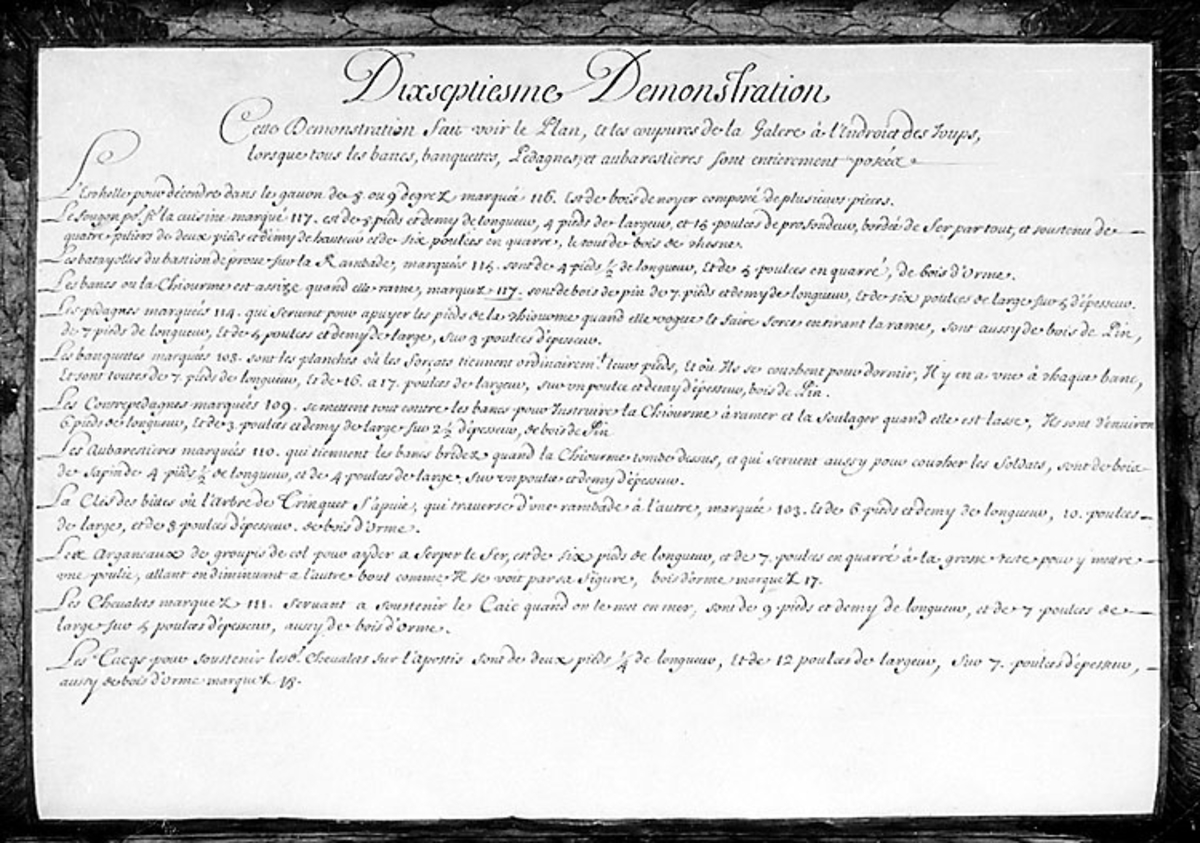 Dixseptiesme Demonstration
Cette Demonstration fait voir le Plan, et les coupures de la Galere à l'Endroict des Joups,
lorsque tous les bancs, banquettes, Pedagnes, et aubarestieres sont entierement posées
L'Eschelle pour décendre dans le gavon de 8 ou 9 degrez marquée 116. Est de bois de noyer composé de plusieurs pieces.
Le fougon po.r f.re la cuisine marqué 117. est de 8 pieds et demy de longueur, 4 pieds de largeur, et 18 poulces de profondeur, bordée de fer par tout, et soustenu de
quatre piliers de deux pieds et demy de hauteur et de six poulces en quarré, le tout de bois de chesne.
Les batayolles du bastion de proue sur la Rambade, marquées 115. sont de 4 pieds ½ de longueur, Et de 5 poulces en quarré, de bois d'Orme.
Les bancs ou la Chiourme est assize quand elle rame, marquez 117. sont de bois de pin de 7. pieds et demy de longueur, Et de six poulces de large sur 5 d'épesseur.
Les pedagnes marquées 114. qui servent pour apuyer les pieds de la chiourme quand elle vogue Et faire force en tirant la rame, sont aussy de bois de Pin,
de 7 pieds de longueur, Et de 5 poulces et demy de large, sur 3 poulces d'épesseur.
Les banquettes marquées 108. sont les planches où les forçats tiennent ordinairem.t leurs pieds, Et où Ils se couchent pour dormir, Il y en a une à chaque banc,
Et sont toutes de 7. pieds de longueur, Et de 16. a 17. poulces de largeur, sur un poulce et demy d'épesseur, bois de Pin.
Les Contrepedagnes marquées 109. se mettent tout contre les bancs pour Instruire la Chiourme à ramer et la soulager quand elle est lasse, Ils sont d'environ
6 pieds de longueur, Et de 3. poulces et demy de large sur 2 ½ d'épesseur, de bois de Pin
Les Aubarestieres marquées 110. qui tiennent les bancs bridez quand la Chiourme tombe dessus, et qui servent aussy pour coucher les Soldats, sont de bois
de sapin de 4 pieds ½ de longueur, et de 4 poulces de large, sur un poulce et demy d'épesseur.
La Clef des bittes où l'Arbre de Trinquet s'apuie, qui traverse d'une rambade à l'autre, marquée 103. Et de 6 pieds et demy de longueur, 10. poulces
de large, et de 8 poulces d'épesseur de bois d'Orme.
Les Arganeaux de groupis de col pour ayder a Serper le fer, est de six pieds de longueur, et de 7. poulces en quarré à la grosse teste pour y mettre
une poulie, allant en diminuant a l'autre bout comme Il se voit par sa figure, bois d'orme marquez 17.
Les Chevalets marquez 111. servant a soustenir le Caic quand on le met en mer, sont de 9 pieds et demy de longueur, et de 7 poulces de
large sur 5 poulces d'épesseur, aussy de bois d'Orme.
Les Tacqs pour soustenir lesd.t Chevalets sur l'apostis sont de deux pieds ¼ de longueur, Et de 12 poulces de largeur, sur 7. poulces d'épesseur,
aussy de bois d'Orme marquez 18.